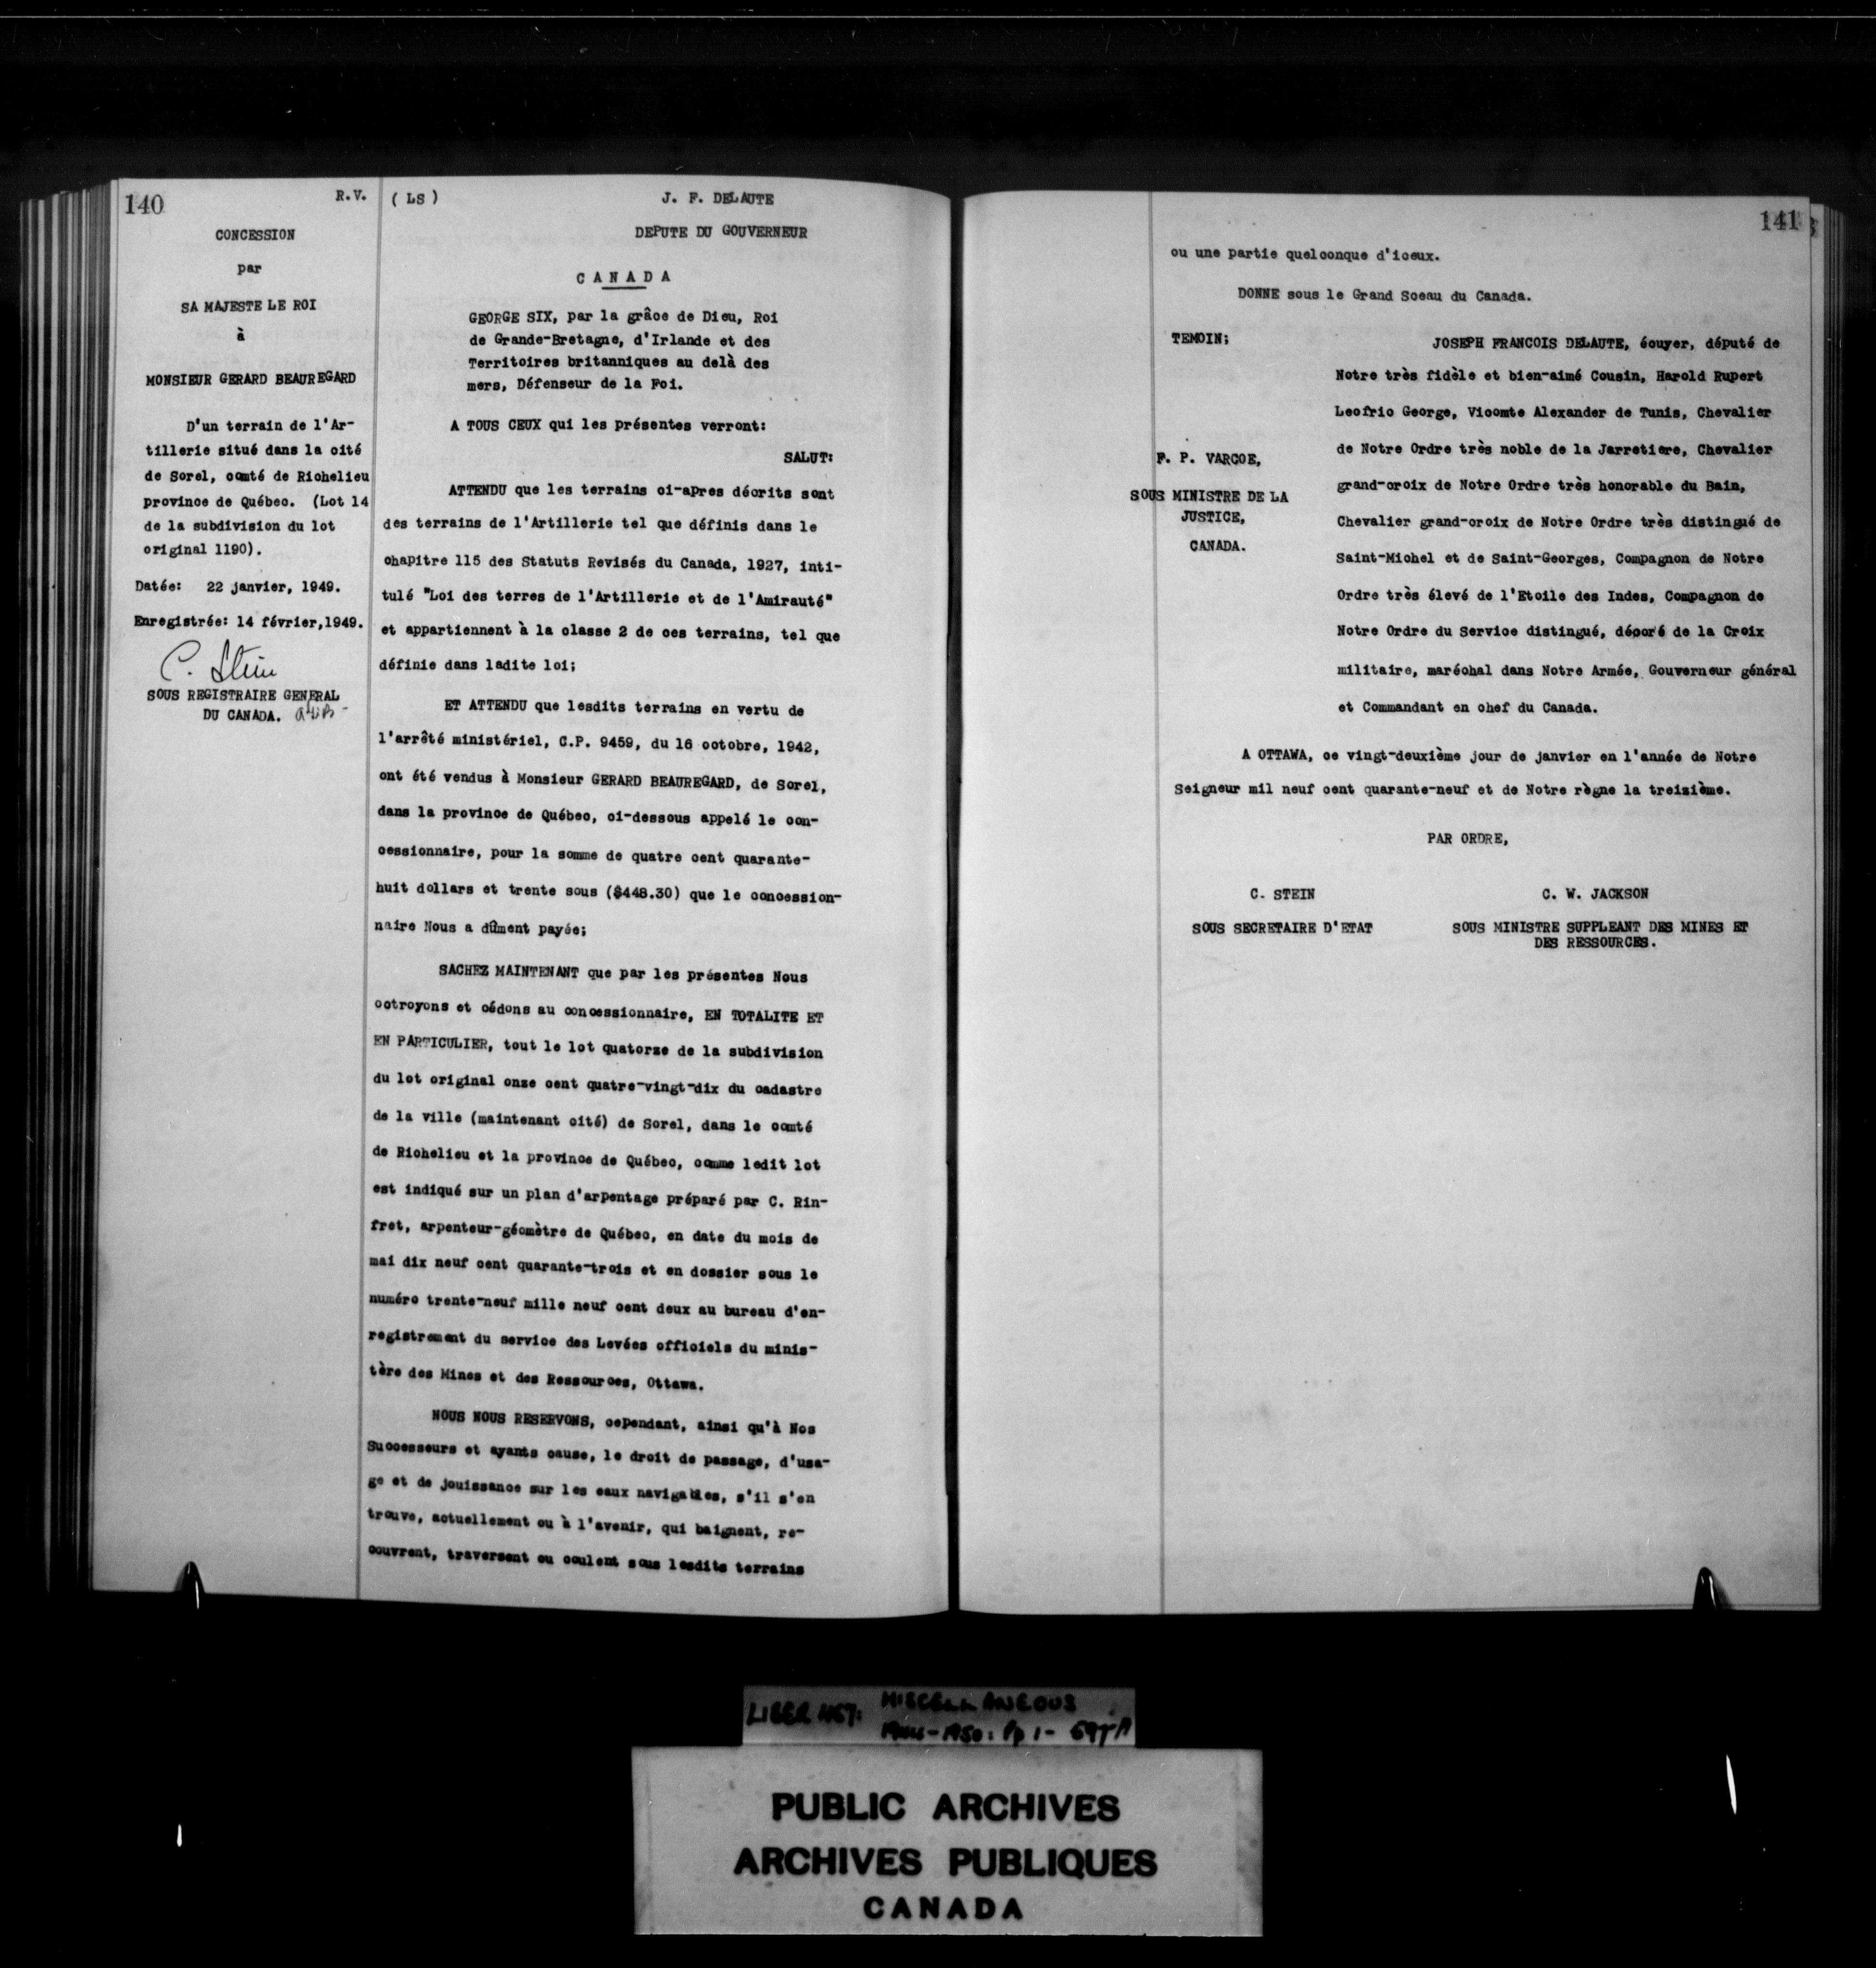 140
R.V.
CONCESSION
par
SA MAJESTE LE ROI
à
MONSIEUR GERARD BEAUREGARD
D'un terrain de l'Ar-
tillerie situé dans la cité
de Sorel, comté de Richelieu
province de Québec. (Lot 14
de la subdivision du lot
original 1190).
Datée: 22 janvier, 1949.
Enregistrée: 14 février,1949.
C. Stein
SOUS REGISTRAIRE GENERAL
DU CANADA.
( LS ) J. F. DELAUTE
DEPUTE DU GOUVERNEUR
C A N A D A
GEORGE SIX, par la grâce de Dieu, Roi
de Grande-Bretagne, d'Irlande et des
Territoires britanniques au delà des
mers, Défenseur de la Foi.
A TOUS CEUX qui les présentes verront:
SALUT:
ATTENDU que les terrains ci-apres décrits sont
des terrains de l'Artillerie tel que définis dans le
chapitre 115 des Statuts Revisés du Canada, 1927, inti-
tulé "Loi des terres de l'Artillerie et de l'Amirauté"
et appartiennent à la classe 2 de ces terrains, tel que
définie dans ladite loi;
ET ATTENDU que lesdits terrains en vertu de
l'arrêté ministériel, C.P. 9459, du 16 octobre, 1942,
ont été vendus à Monsieur GERARD BEAUREGARD, de Sorel,
dans la province de Québec, ci-dessous appelé le con-
cessionnaire, pour la somme de quatre cent quarante-
huit dollars et trente sous ($448.30) que le concession-
naire Nous a dûment payée;
SACHEZ MAINTENANT que par les présentes Nous
octroyons et cédons au concessionnaire, EN TOTALITE ET
EN PARTICULIER, tout le lot quatorze de la subdivision
du lot original onze cent quatre-vingt-dix du cadastre
de la ville (maintenant cité) de Sorel, dans le comté
de Richelieu et la province de Québec, comme ledit lot
est indiqué sur un plan d'arpentage préparé par C. Rin-
fret, arpenteur-géomètre de Québec, en date du mois de
mai dix neuf cent quarante-trois et en dossier sous le
numéro trente-neuf mille neuf cent deux au bureau d'en-
registrement du service des Levées officiels du minis-
tère des Mines et des Ressources, Ottawa.
NOUS NOUS RESERVONS, cependant, ainsi qu'à Nos
Successeurs et ayants cause, le droit de passage, d'usa-
ge et de jouissance sur les eaux navigables, s'il s'en
trouve, actuellement ou à l'avenir, qui baignent, re-
couvrent, traversent ou coulent sous lesdits terrains
141
ou une partie quelconque d'iceux.
DONNE sous le Grand Sceau du Canada.
TEMOIN;
JOSEPH FRANCOIS DELAUTE, écuyer, député de
Notre très fidèle et bien-aimé Cousin, Harold Rupert
Leofric George, Vicomte Alexander de Tunis, Chevalier
de Notre Ordre très noble de la Jarretiere, Chevalier
grand-croix de Notre Ordre très honorable du Bain,
Chevalier grand-croix de Notre Ordre très distingué de
Saint-Michel et de Saint-Georges, Compagnon de Notre
Ordre très élevé de l'Etoile des Indes, Compagnon de
Notre Ordre du Service distingué, décoré de la Croix
militaire, maréchal dans Notre Armée, Gouverneur général
et Commandant en chef du Canada.
F. P. VARCOE,
SOUS MINISTRE DE LA
JUSTICE,
CANADA.
A OTTAWA, ce vingt-deuxième jour de janvier en l'année de Notre
Seigneur mil neuf cent quarante-neuf et de Notre règne la treizième.
PAR ORDRE,
C. STEIN
SOUS SECRETAIRE D'ETAT
C. W. JACKSON
SOUS MINISTRE SUPPLEANT DES MINES ET
DES RESSOURCES.
LIBER 467: MISCELLANEOUS
-1950: Pp 1-
PUBLIC ARCHIVES
ARCHIVES PUBLIQUES
CANADA